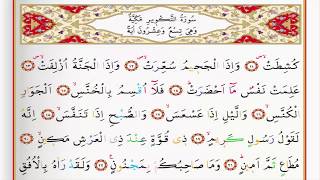 سُورَةُ التَّكْوِيرِ مَكِّيَّةٌ
وَهِيَ تِسْعٌ وَعِشْرُونَ آيَةً
كُشِطَتْ وَاِذَا الْجَحِيمُ سُعِّرَتْ وَاِذَا الْجَنَّةُ اُزْلِفَتْ
عَلِمَتْ نَفْسٌ مَا اَحْضَرَتْ فَلَا اُقْسِمُ بِالْخُنَّسِ اَلْجَوَارِ
الْكُنَّسِ وَالَّيْلِ اِذَا عَسْعَسَ وَالصُّبْحِ اِذَا تَنَفَّسَ اِنَّهُ
لَقَوْلُ رَسُولٍ كَرِيمٍ ذِي قُوَّةٍ عِنْدَ ذِي الْعَرْشِ مَكِينٍ
مُطَاعٍ ثَمَّ اَمِينٍ وَمَا صَاحِبُكُمْ بِمَجْنُونٍ وَلَقَدْ رَاٰهُ بِالْاُفُقِ